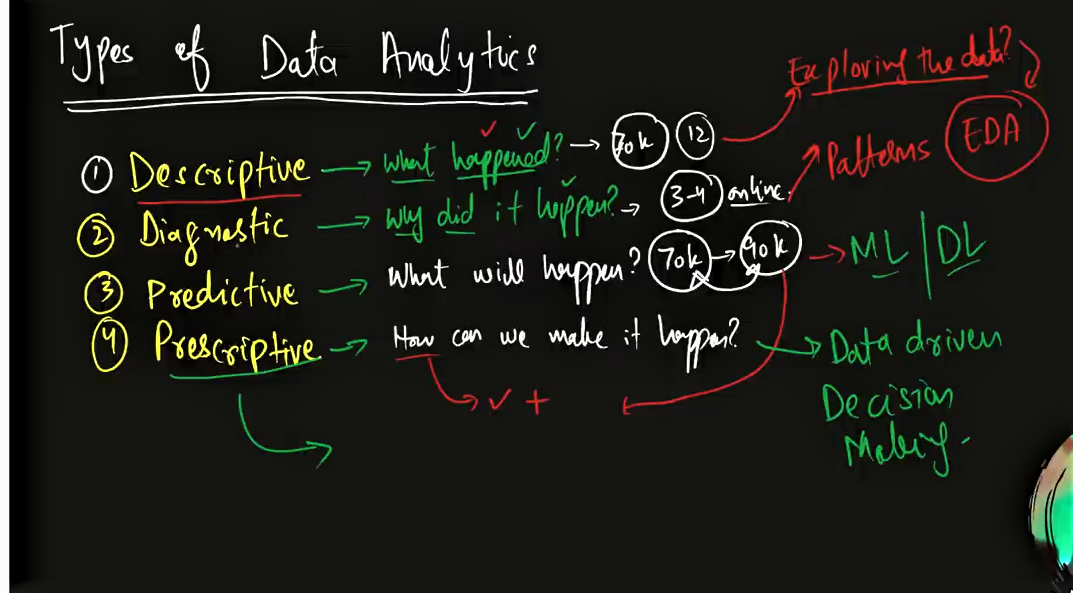 Types of Data Analytics
① Descriptive → What happened? → 70k 12
Exploring the data?
EDA
Patterns
② Diagnostic → Why did it happen? → 3-4 online.
③ Predictive → What will happen? 70k → 90k → ML | DL
④ Prescriptive → How can we make it happen? → Data driven
Decision
Making.
✓ +